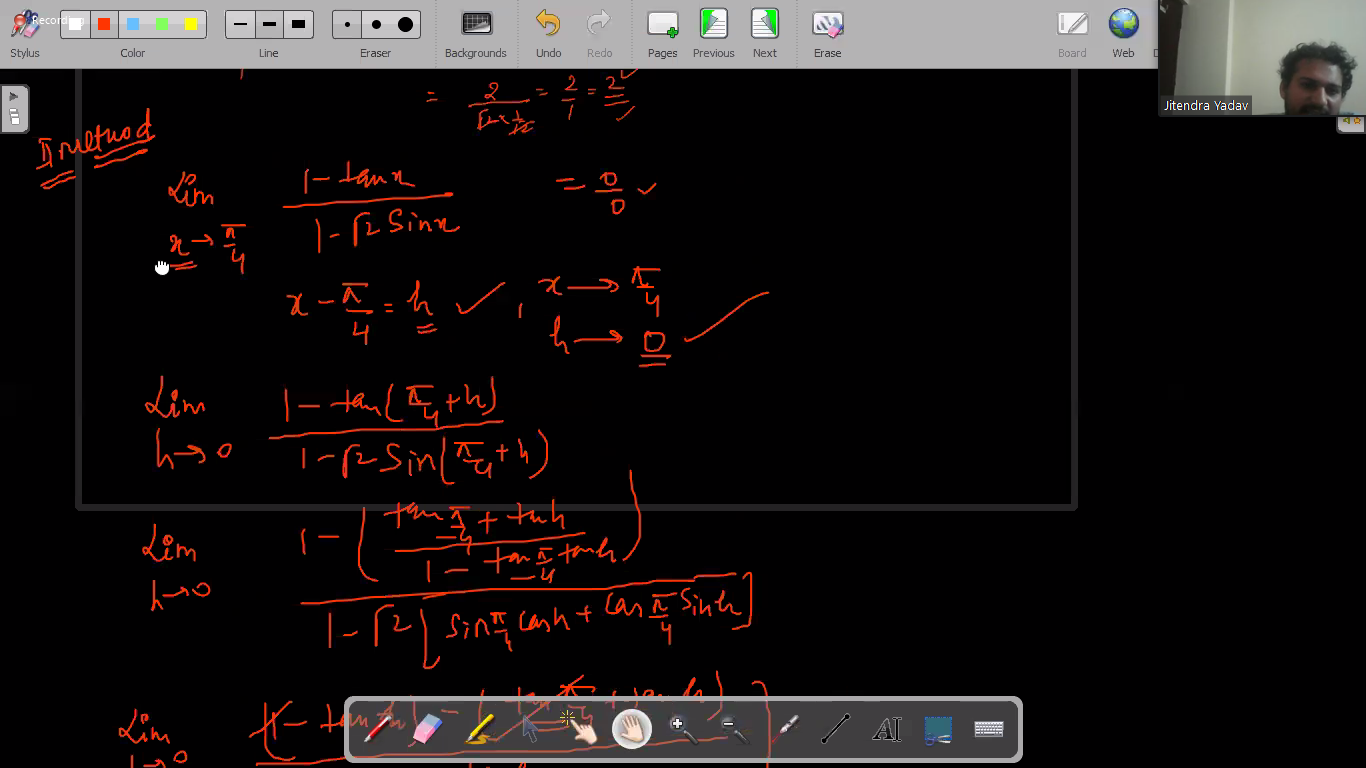 Recording
Stylus Color Line Eraser Backgrounds Undo Redo Pages Previous Next Erase Board Web
Jitendra Yadav
= 2/(√2×1/√2) = 2/1 = 2
II method
Lim x→π/4 (1 - tan x)/(1 - √2 Sin x) = 0/0 ✓
x - π/4 = h ✓, x → π/4
h → 0
Lim h→0 (1 - tan(π/4 + h))/(1 - √2 Sin(π/4 + h))
Lim h→0 (1 - ((tan π/4 + tan h)/(1 - tan π/4 tan h)))/(1 - √2 [Sin π/4 Cos h + Cos π/4 Sin h])
Lim h→0
AI